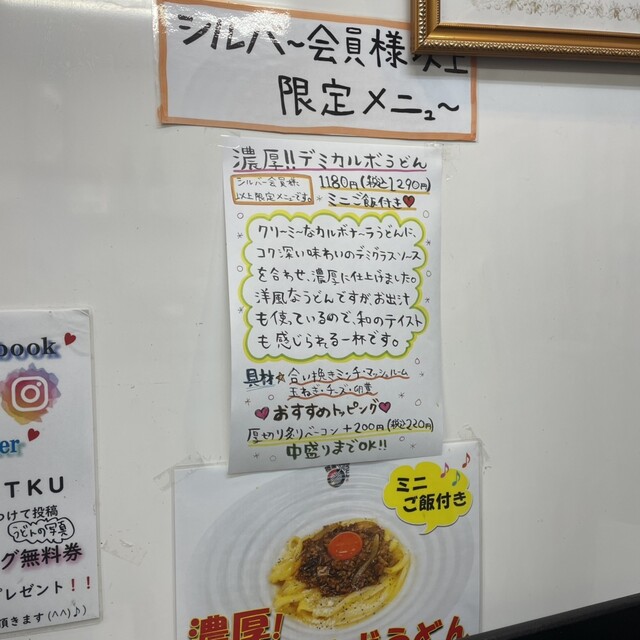 シルバー会員様以上
限定メニュ〜
濃厚!!デミカルボうどん
シルバー会員様
以上限定メニューです。
1180円(税込1290円)
ミニご飯付き♥
クリーミーなカルボナーラうどんに、
コク深い味わいのデミグラスソース
を合わせ、濃厚に仕上げました。
洋風なうどんですがお出汁
も使っているので、和のテイスト
も感じられる一杯です。
具材☆合い挽きミンチ・マッシュルーム
玉ねぎ・チーズ・卵黄
♥おすすめトッピング♥
厚切り炙りベーコン+200円(税込220円)
中盛りまでOK!!
ミニ
ご飯付き
濃厚!
うどん
book
er
TKU
つけて投稿
うどんの写真
グ無料券
プレゼント!!
頂きます(^^)♪